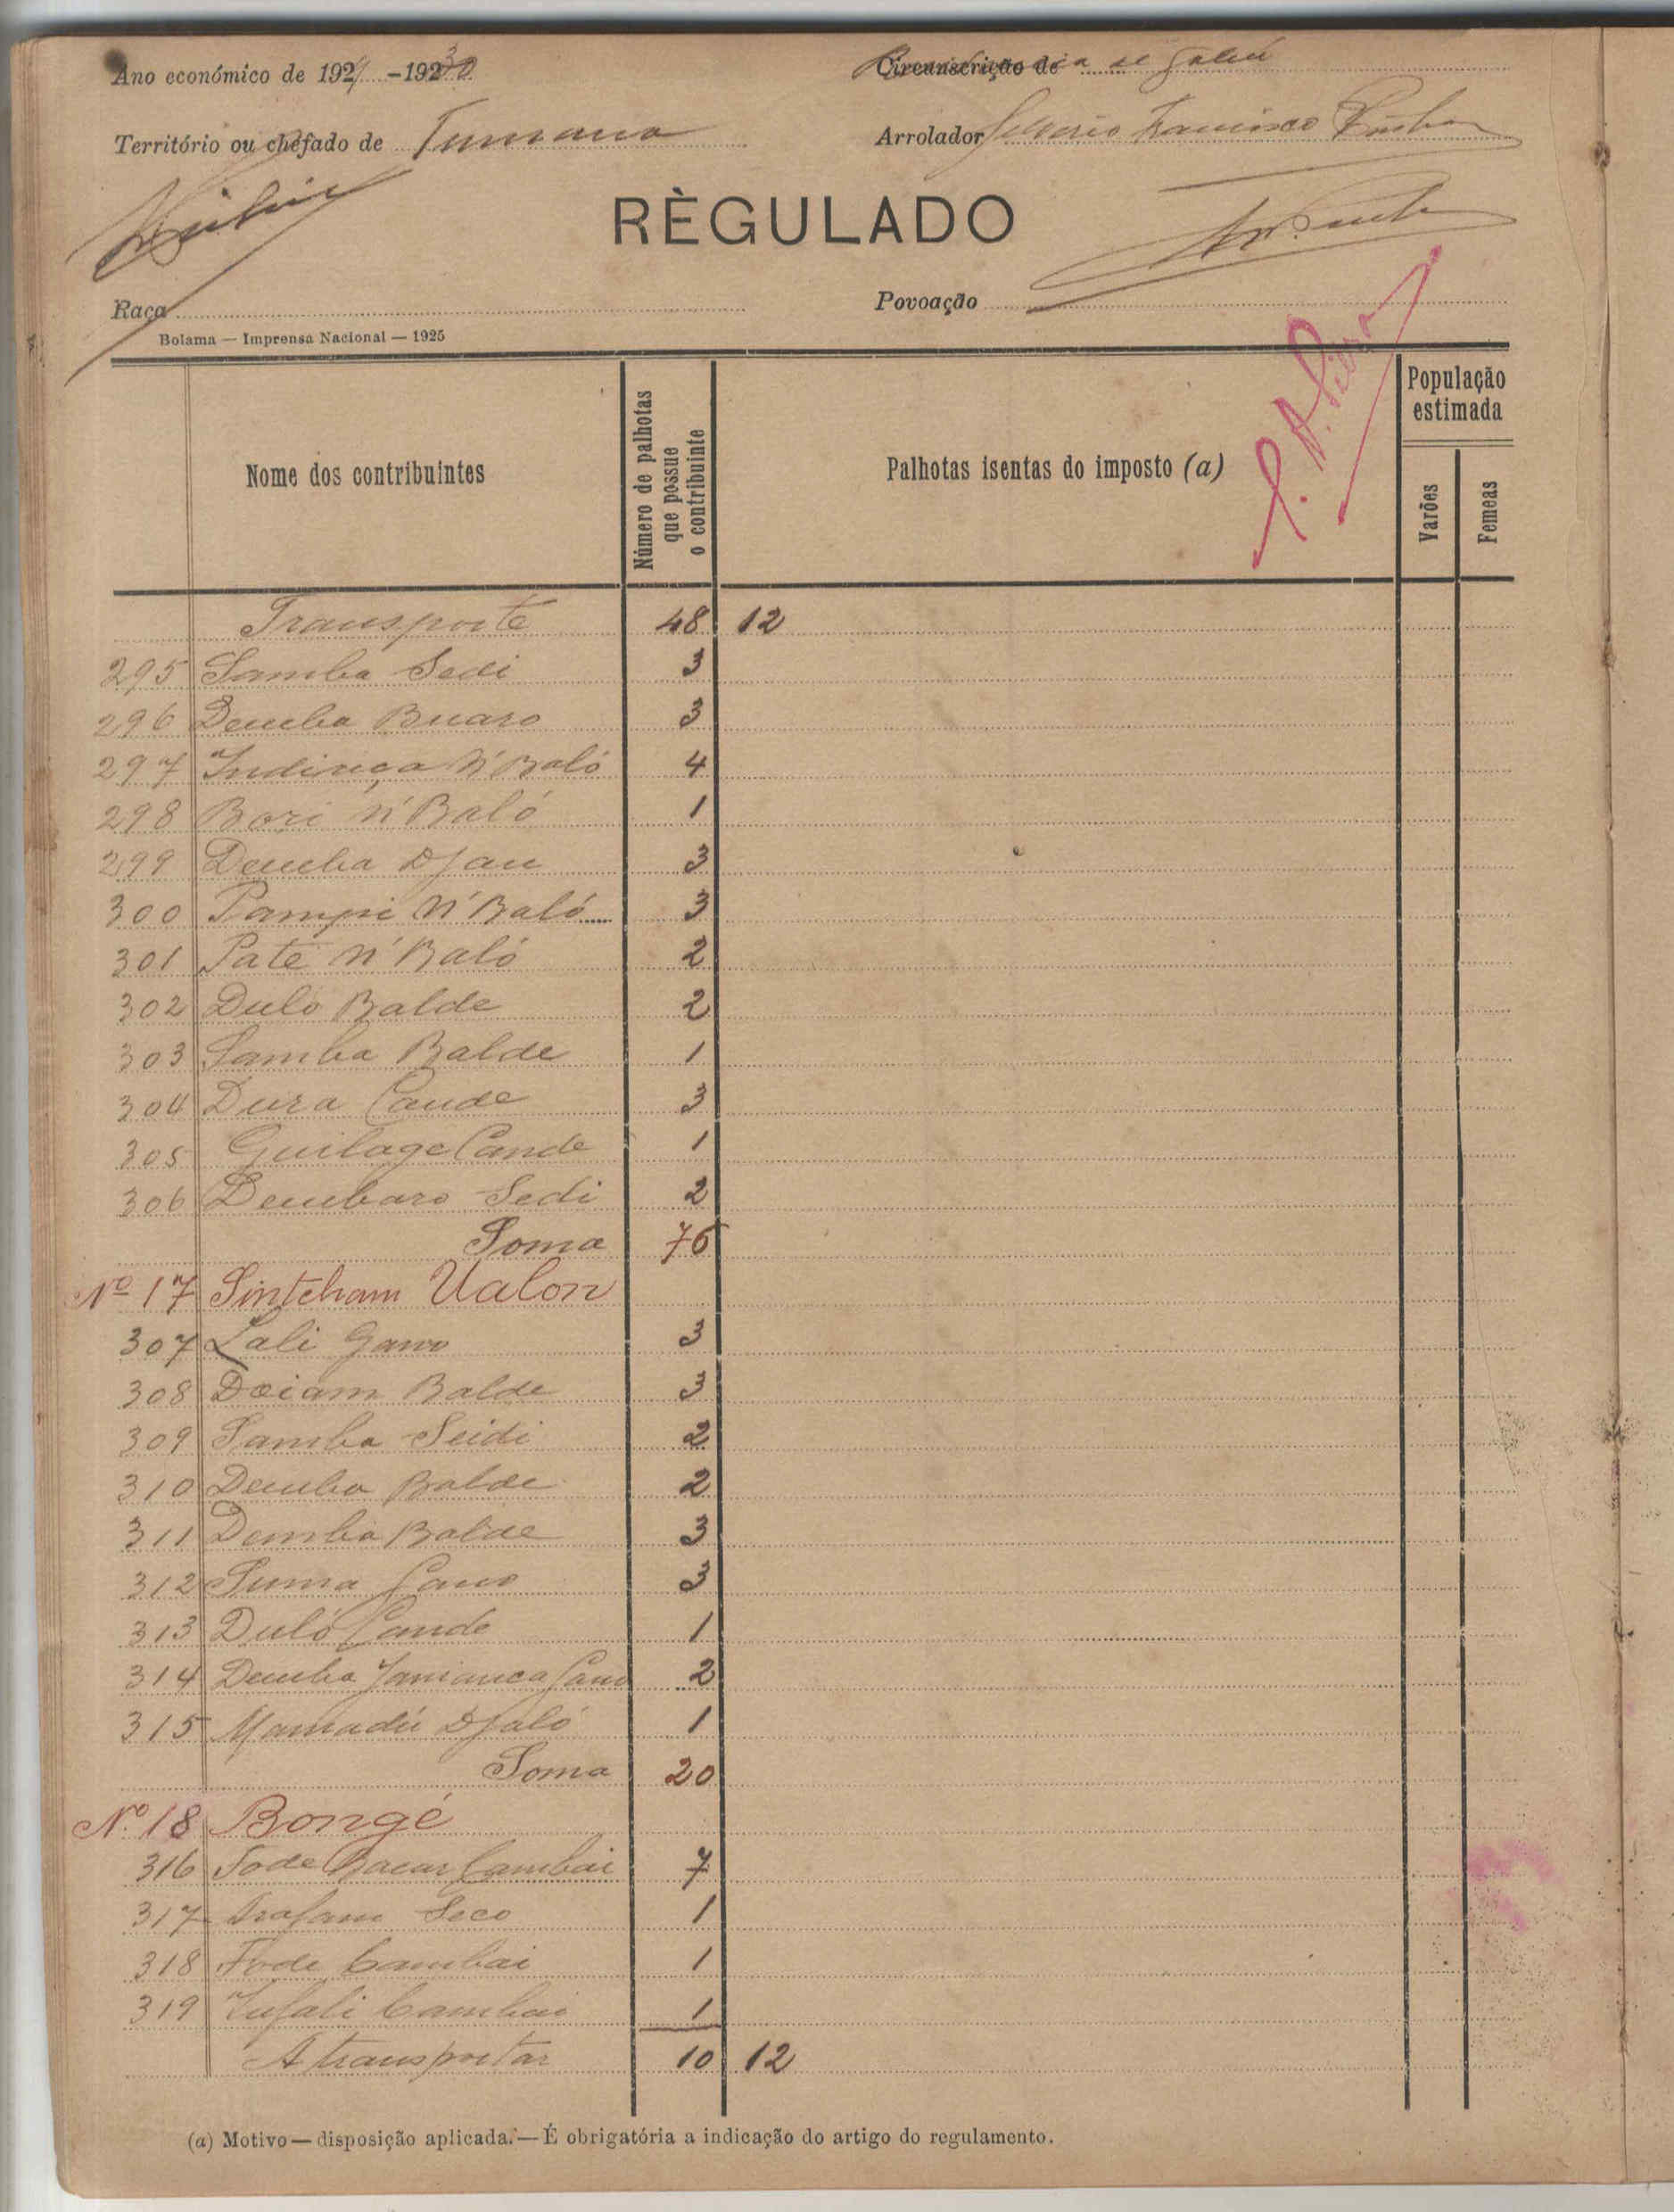 Ano económico de 1929-1930
Circunscrição de
Território ou chefado de Tumana
Arrolador Francisco
RÈGULADO
Raça
Povoação
Bolama — Imprensa Nacional — 1925
Nome dos contribuintes
Número de palhotas que possue o contribuinte
Palhotas isentas do imposto (a)
População estimada
Varões
Femeas
Transporte 48 12
295 Samba Sedi 3
296 Demba Buaro 3
297 N'Baló 4
298 Bori N'Baló 1
299 Demba Djau 3
300 Pampi N'Baló 3
301 Pate N'Baló 2
302 Duló Balde 2
303 Samba Balde 1
304 Dura Cande 3
305 Guilage Cande 1
306 Dembaro Sedi 2
Soma 76
Nº 17 Sintcham Ualon
307 Lali Gano 3
308 Balde 3
309 Samba Seidi 2
310 Demba Balde 2
311 Demba Balde 3
312 Suma 3
313 Duló Cande 1
314 Demba 2
315 Mamadú Djaló 1
Soma 20
Nº 18 Bongé
316 Fode Bacar Cambai 7
317 Seco 1
318 Fode Cambai 1
319 Cambai 1
A transportar 10 12
(a) Motivo — disposição aplicada. — É obrigatória a indicação do artigo do regulamento.